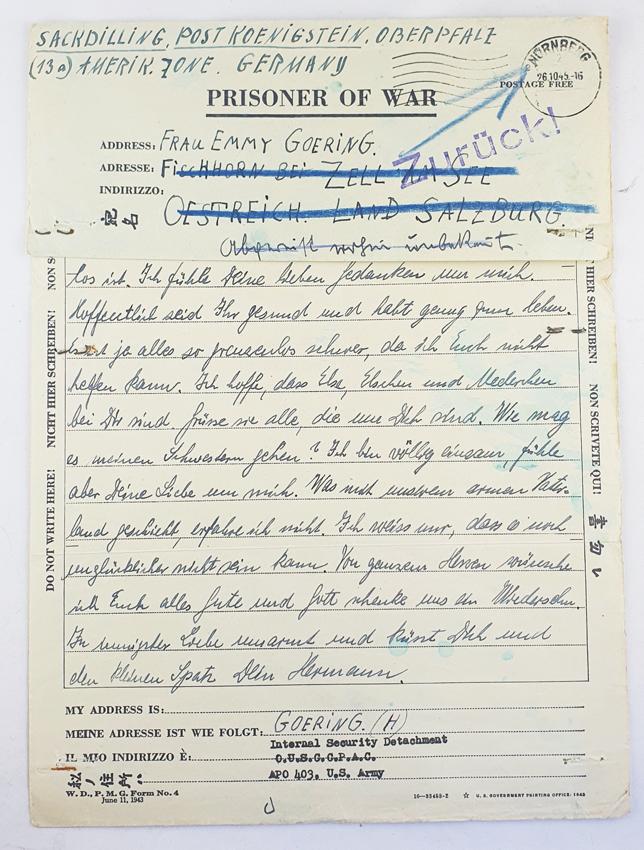 SACKDILLING, POST KOENIGSTEIN. OBERPFALZ
(13a) AMERIK. ZONE. GERMANY
NÜRNBERG
26.10.45.-16
POSTAGE FREE
PRISONER OF WAR
Zurück!
ADDRESS: FRAU EMMY GOERING.
ADRESSE: FISCHHORN BEI ZELL AM SEE
INDIRIZZO: OESTREICH. LAND SALZBURG
宛名
Abgereist wohin unbekannt.
los ist. Ich fühle Deine lieben Gedanken um mich.
Hoffentlich seid Ihr gesund und habt genug zum leben.
ist ja alles so grauenlos schwer, da ich Euch nicht
helfen kann. Ich hoffe, dass Else, Elschen und
bei Dir sind. Grüsse sie alle, die um Dich sind. Wie mag
es meinen Schwestern gehen? Ich bin völlig einsam, fühle
aber Deine Liebe um mich. Was mit unserem armen Vater-
land geschieht, erfahre ich nicht. Ich weiss nur, dass es noch
unglücklicher nicht sein kann. Von ganzem Herzen wünsche
ich Euch alles Gute und Gott schenke uns ein Wiedersehn.
In innigster Liebe umarmt und küsst Dich und
den kleinen Spatz Dein Hermann.
NON S
NICHT HIER SCHREIBEN!
DO NOT WRITE HERE!
NICHT HIER SCHREIBEN!
NON SCRIVETE QUI!
書勿レ
MY ADDRESS IS:
MEINE ADRESSE IST WIE FOLGT: GOERING. (H)
Internal Security Detachment
IL MIO INDIRIZZO È: O.U.S.C.C.P.A.C.
APO 403, U.S. Army
私ノ住所ハ
W. D., P. M. G. Form No. 4
June 11, 1943
16—35453-2 ☆ U. S. GOVERNMENT PRINTING OFFICE: 1943